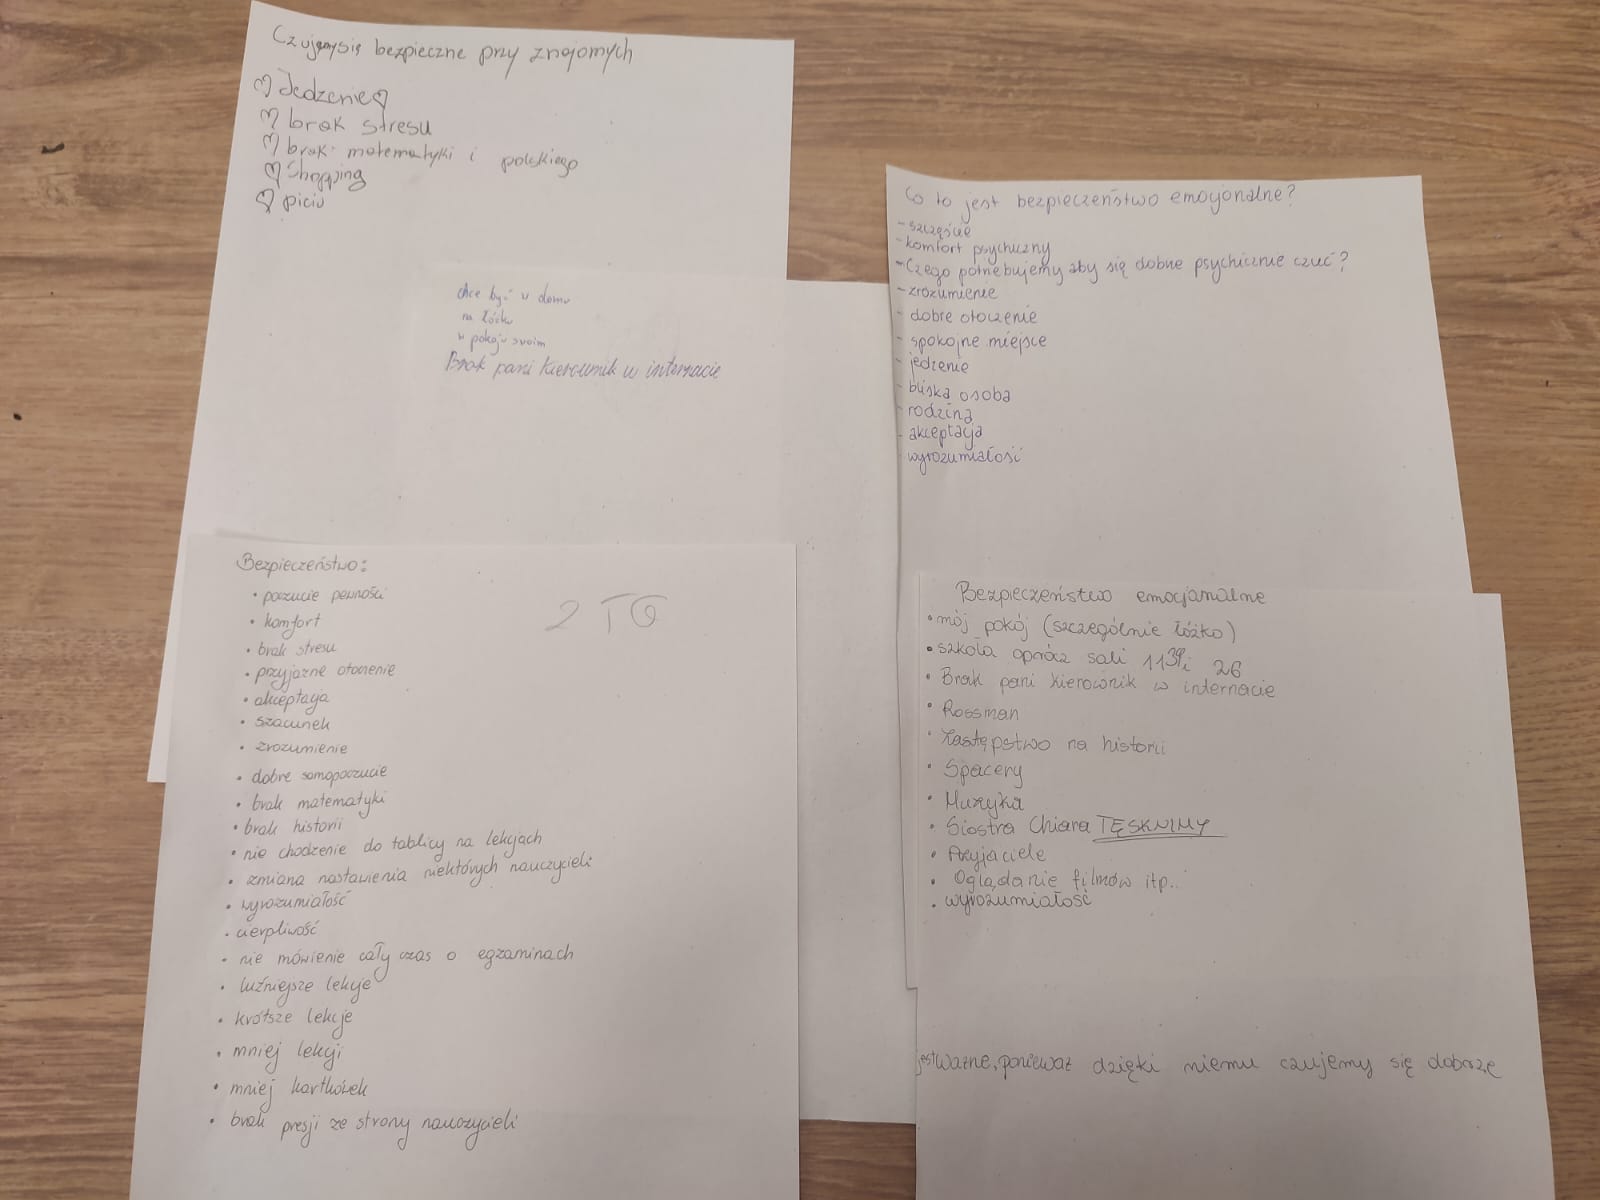 Czujemy się bezpieczne przy znajomych
Jedzenie
brak stresu
brak matematyki i polskiego
Shopping
piciu
chce być w domu
na łóżku
w pokoju swoim
Brak pani kierownik w internacie
Co to jest bezpieczeństwo emocjonalne?
- szczęście
- komfort psychiczny
- Czego potrzebujemy aby się dobrze psychicznie czuć?
- zrozumienie
- dobre otoczenie
- spokojne miejsce
- jedzenie
- bliska osoba
- rodzina
- akceptacja
- wyrozumiałość
Bezpieczeństwo:
2 TG
• poczucie pewności
• komfort
• brak stresu
• przyjazne otoczenie
• akceptacja
• szacunek
• zrozumienie
• dobre samopoczucie
• brak matematyki
• brak historii
• nie chodzenie do tablicy na lekcjach
• zmiana nastawienia niektórych nauczycieli
• wyrozumiałość
• cierpliwość
• nie mówienie cały czas o egzaminach
• luźniejsze lekcje
• krótsze lekcje
• mniej lekcji
• mniej kartkówek
• brak presji ze strony nauczycieli
Bezpieczeństwo emocjonalne
• mój pokój (szczególnie łóżko)
• szkoła oprócz sali i 26
• Brak pani kierownik w internacie
• Rossman
• Zastępstwo na historii
• Spacery
• Muzyka
• Siostra Chiara TĘSKNIMY
• Przyjaciele
• Oglądanie filmów itp..
• wyrozumiałość
jest ważne, ponieważ dzięki niemu czujemy się dobrze